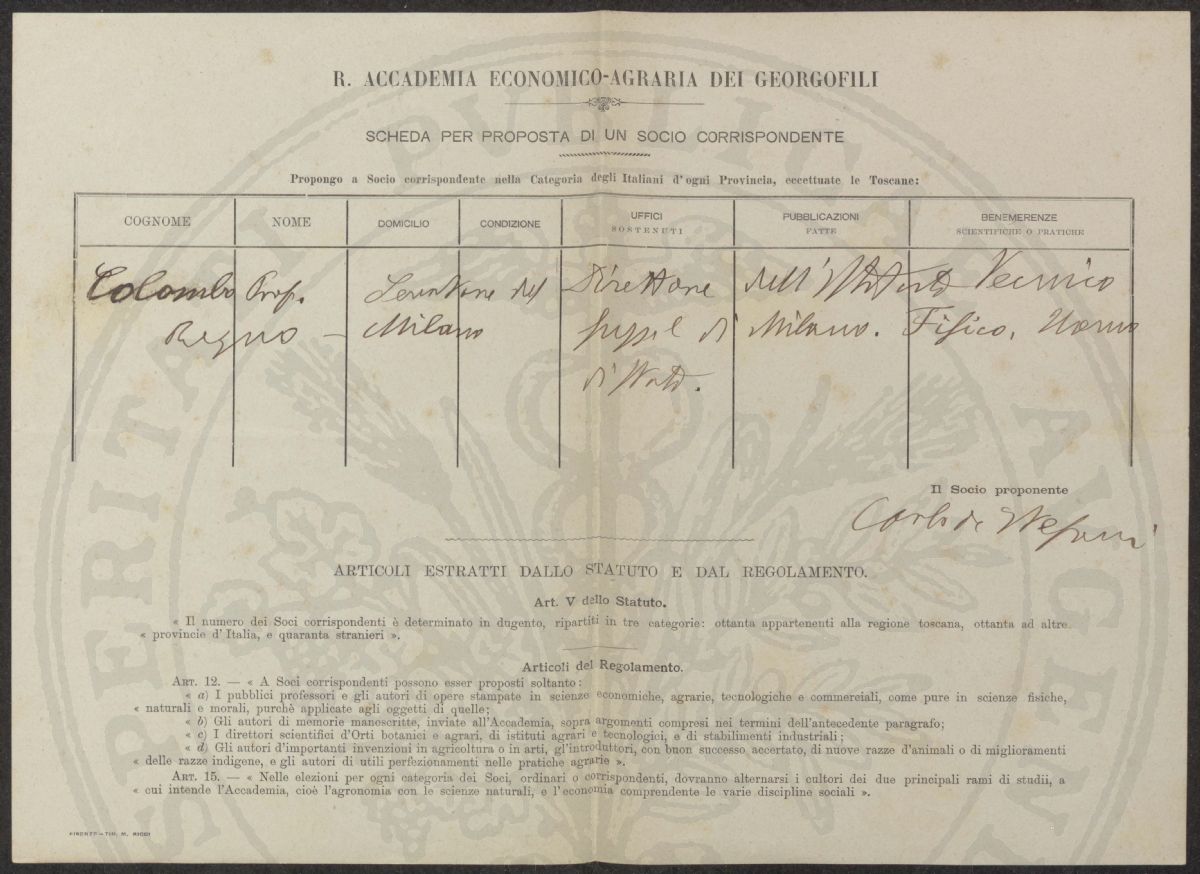 R. ACCADEMIA ECONOMICO-AGRARIA DEI GEORGOFILI
SCHEDA PER PROPOSTA DI UN SOCIO CORRISPONDENTE
Propongo a Socio corrispondente nella Categoria degli Italiani d'ogni Provincia, eccettuate le Toscane:
COGNOME NOME DOMICILIO CONDIZIONE UFFICI SOSTENUTI PUBBLICAZIONI FATTE BENEMERENZE SCIENTIFICHE O PRATICHE
Colombo Prof. Senatore del Direttore dell'Istituto Tecnico
Regno – Milano di Milano. Fisico, Uomo
di Stato.
Il Socio proponente
Carlo de Stefani
ARTICOLI ESTRATTI DALLO STATUTO E DAL REGOLAMENTO.
Art. V dello Statuto.
« Il numero dei Soci corrispondenti è determinato in dugento, ripartiti in tre categorie: ottanta appartenenti alla regione toscana, ottanta ad altre
« provincie d'Italia, e quaranta stranieri ».
Articoli del Regolamento.
ART. 12. — « A Soci corrispondenti possono esser proposti soltanto:
« a) I pubblici professori e gli autori di opere stampate in scienze economiche, agrarie, tecnologiche e commerciali, come pure in scienze fisiche,
« naturali e morali, purchè applicate agli oggetti di quelle;
« b) Gli autori di memorie manoscritte, inviate all'Accademia, sopra argomenti compresi nei termini dell'antecedente paragrafo;
« c) I direttori scientifici d'Orti botanici e agrari, di istituti agrari e tecnologici, e di stabilimenti industriali;
« d) Gli autori d'importanti invenzioni in agricoltura o in arti, gl'introduttori, con buon successo accertato, di nuove razze d'animali o di miglioramenti
« delle razze indigene, e gli autori di utili perfezionamenti nelle pratiche agrarie ».
ART. 15. — « Nelle elezioni per ogni categoria dei Soci, ordinari o corrispondenti, dovranno alternarsi i cultori dei due principali rami di studii, a
« cui intende l'Accademia, cioè l'agronomia con le scienze naturali, e l'economia comprendente le varie discipline sociali ».
FIRENZE – TIP. M. RICCI